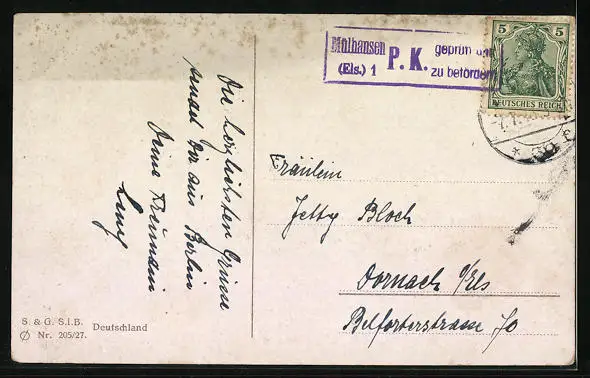 Die herzlichsten Grüsse
sendet Dir aus Berlin
Deine Freundin
Mülhausen
(Els.) 1
P. K.
geprüft und
zu befördern
5 5
DEUTSCHES REICH
Fräulein
Jetty Bloch
Dornach i/Els
Belforterstrasse 70
S. & G. S.i.B.
Nr. 205/27.
Deutschland